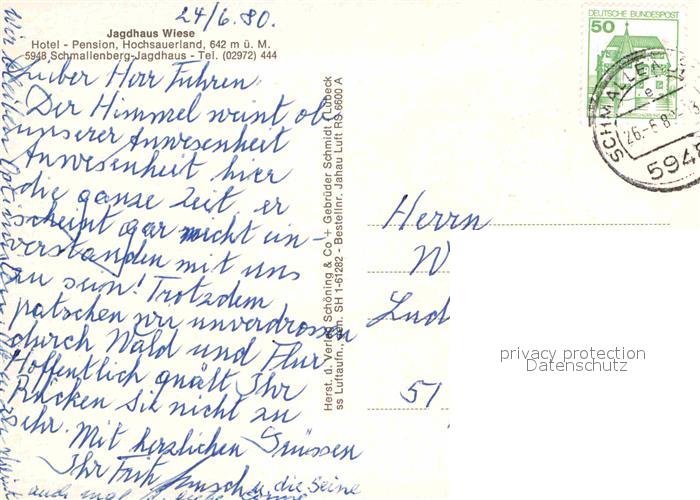 24/6.80.
Jagdhaus Wiese
Hotel - Pension, Hochsauerland, 642 m ü. M.
5948 Schmallenberg-Jagdhaus - Tel. (02972) 444
Lieber Herr Fuhren!
Der Himmel weint ob
unserer Anwesenheit
Anwesenheit hier
die ganze Zeit, er
scheint gar nicht ein-
verstanden mit uns
zu sein! Trotzdem
patschen wir unverdrossen
durch Wald und Flur
Hoffentlich quält Ihr
Rücken Sie nicht zu
sehr. Mit herzlichen Grüssen
Ihr Fritz u. die Seine
auch mal
Wir bleiben Optimisten
Herst. u. Verlag Schöning & Co + Gebrüder Schmidt, Lübeck
ss Luftaufn., Gen. SH 1-61282 - Bestellnr. Jahau Luft RS 6600 A
DEUTSCHE BUNDESPOST
50
SCHMALLENB
26.-6.80
5948
Herrn
W
Lud
51
privacy protection
Datenschutz